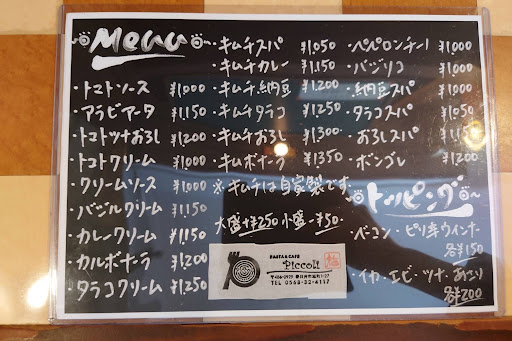 Menu
・トマトソース ¥1,000
・アラビアータ ¥1,150
・トマトツナおろし ¥1,200
・トマトクリーム ¥1,000
・クリームソース ¥1,000
・バジルクリーム ¥1,150
・カレークリーム ¥1,150
・カルボナーラ ¥1,200
・タラコクリーム ¥1,250
・キムチスパ ¥1,050
・キムチカレー ¥1,150
・キムチ納豆 ¥1,200
・キムチタラコ ¥1,250
・キムチおろし ¥1,300
・キムボナーラ ¥1,350
※キムチは自家製です。
大盛+¥250 小盛-¥50
PASTA & CAFE
Piccoli
TEL 0568-32-4117
・ペペロンチーノ ¥1,000
・バジリコ ¥1,000
・納豆スパ ¥1,000
・タラコスパ
・おろしスパ
・ボンゴレ ¥1,200
トッピング
・ベーコン・ピリ辛ウインナー
各¥150
・イカ・エビ・ツナ・あさり
各¥200